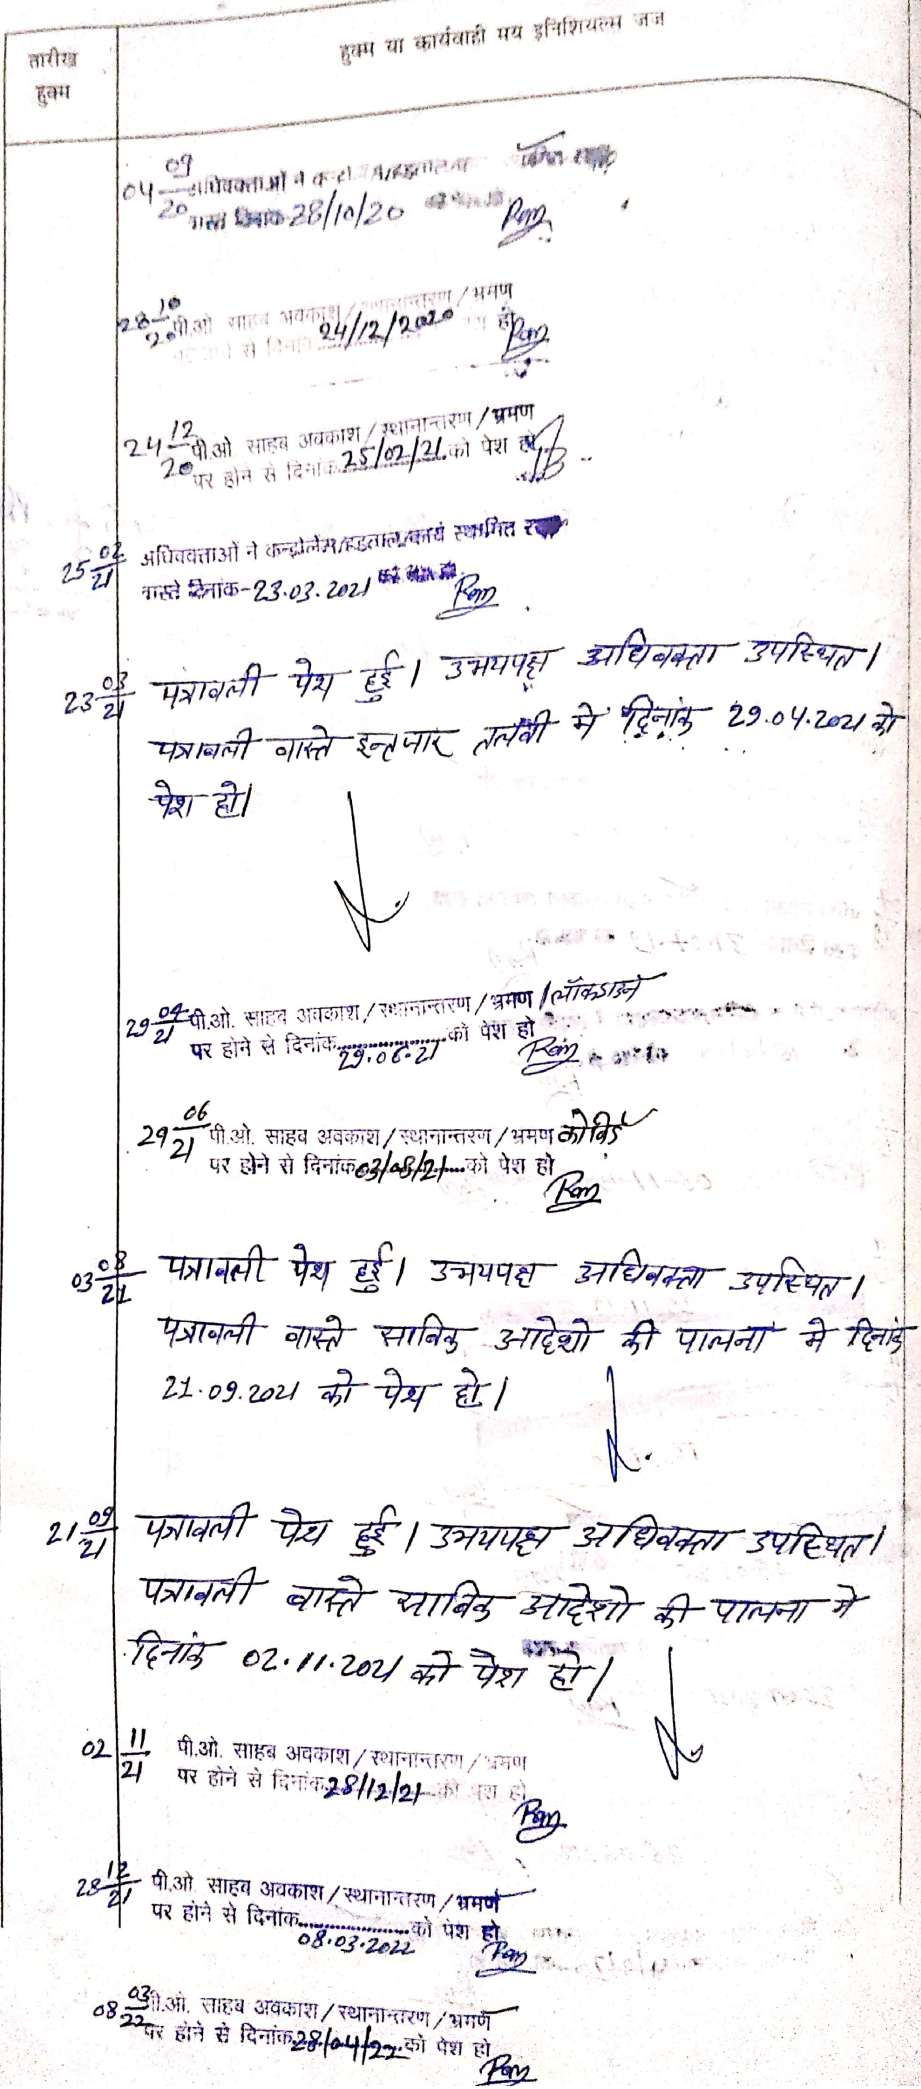 तारीख
हुक्म
हुक्म या कार्यवाही मय इनिशियल्स जज
04 09/20 अधिवक्ताओं ने
वास्ते दिनांक 28/10/20
28 10/20 पी.ओ. साहब अवकाश/स्थानान्तरण/भ्रमण
से दिनांक 24/12/2020 पेश हो
24 12/20 पी.ओ. साहब अवकाश/स्थानान्तरण/भ्रमण
पर होने से दिनांक 25/02/21 को पेश हो
25 02/21 अधिवक्ताओं ने कन्डोलेंस/हडताल/कार्य स्थगित
वास्ते दिनांक-23.03.2021
23 03/21 पत्रावली पेश हुई। उभयपक्ष अधिवक्ता उपस्थित।
पत्रावली वास्ते इन्तजार तलबी मे दिनांक 29.04.2021 को
पेश हो।
29 04/21 पी.ओ. साहब अवकाश/स्थानान्तरण/भ्रमण/लॉकडाउन
पर होने से दिनांक 29.06.21 को पेश हो
29 06/21 पी.ओ. साहब अवकाश/स्थानान्तरण/भ्रमण कोविड
पर होने से दिनांक 03/08/21 को पेश हो
03 08/21 पत्रावली पेश हुई। उभयपक्ष अधिवक्ता उपस्थित।
पत्रावली वास्ते साबिक आदेशो की पालना मे दिनांक
21.09.2021 को पेश हो।
21 09/21 पत्रावली पेश हुई। उभयपक्ष अधिवक्ता उपस्थित।
पत्रावली वास्ते साबिक आदेशो की पालना मे
दिनांक 02.11.2021 को पेश हो।
02 11/21 पी.ओ. साहब अवकाश/स्थानान्तरण/भ्रमण
पर होने से दिनांक 28/12/21 को पेश हो
28 12/21 पी.ओ. साहब अवकाश/स्थानान्तरण/भ्रमण
पर होने से दिनांक 08.03.2022 को पेश हो
08 03/22 पी.ओ. साहब अवकाश/स्थानान्तरण/भ्रमण
पर होने से दिनांक 28/04/22 को पेश हो